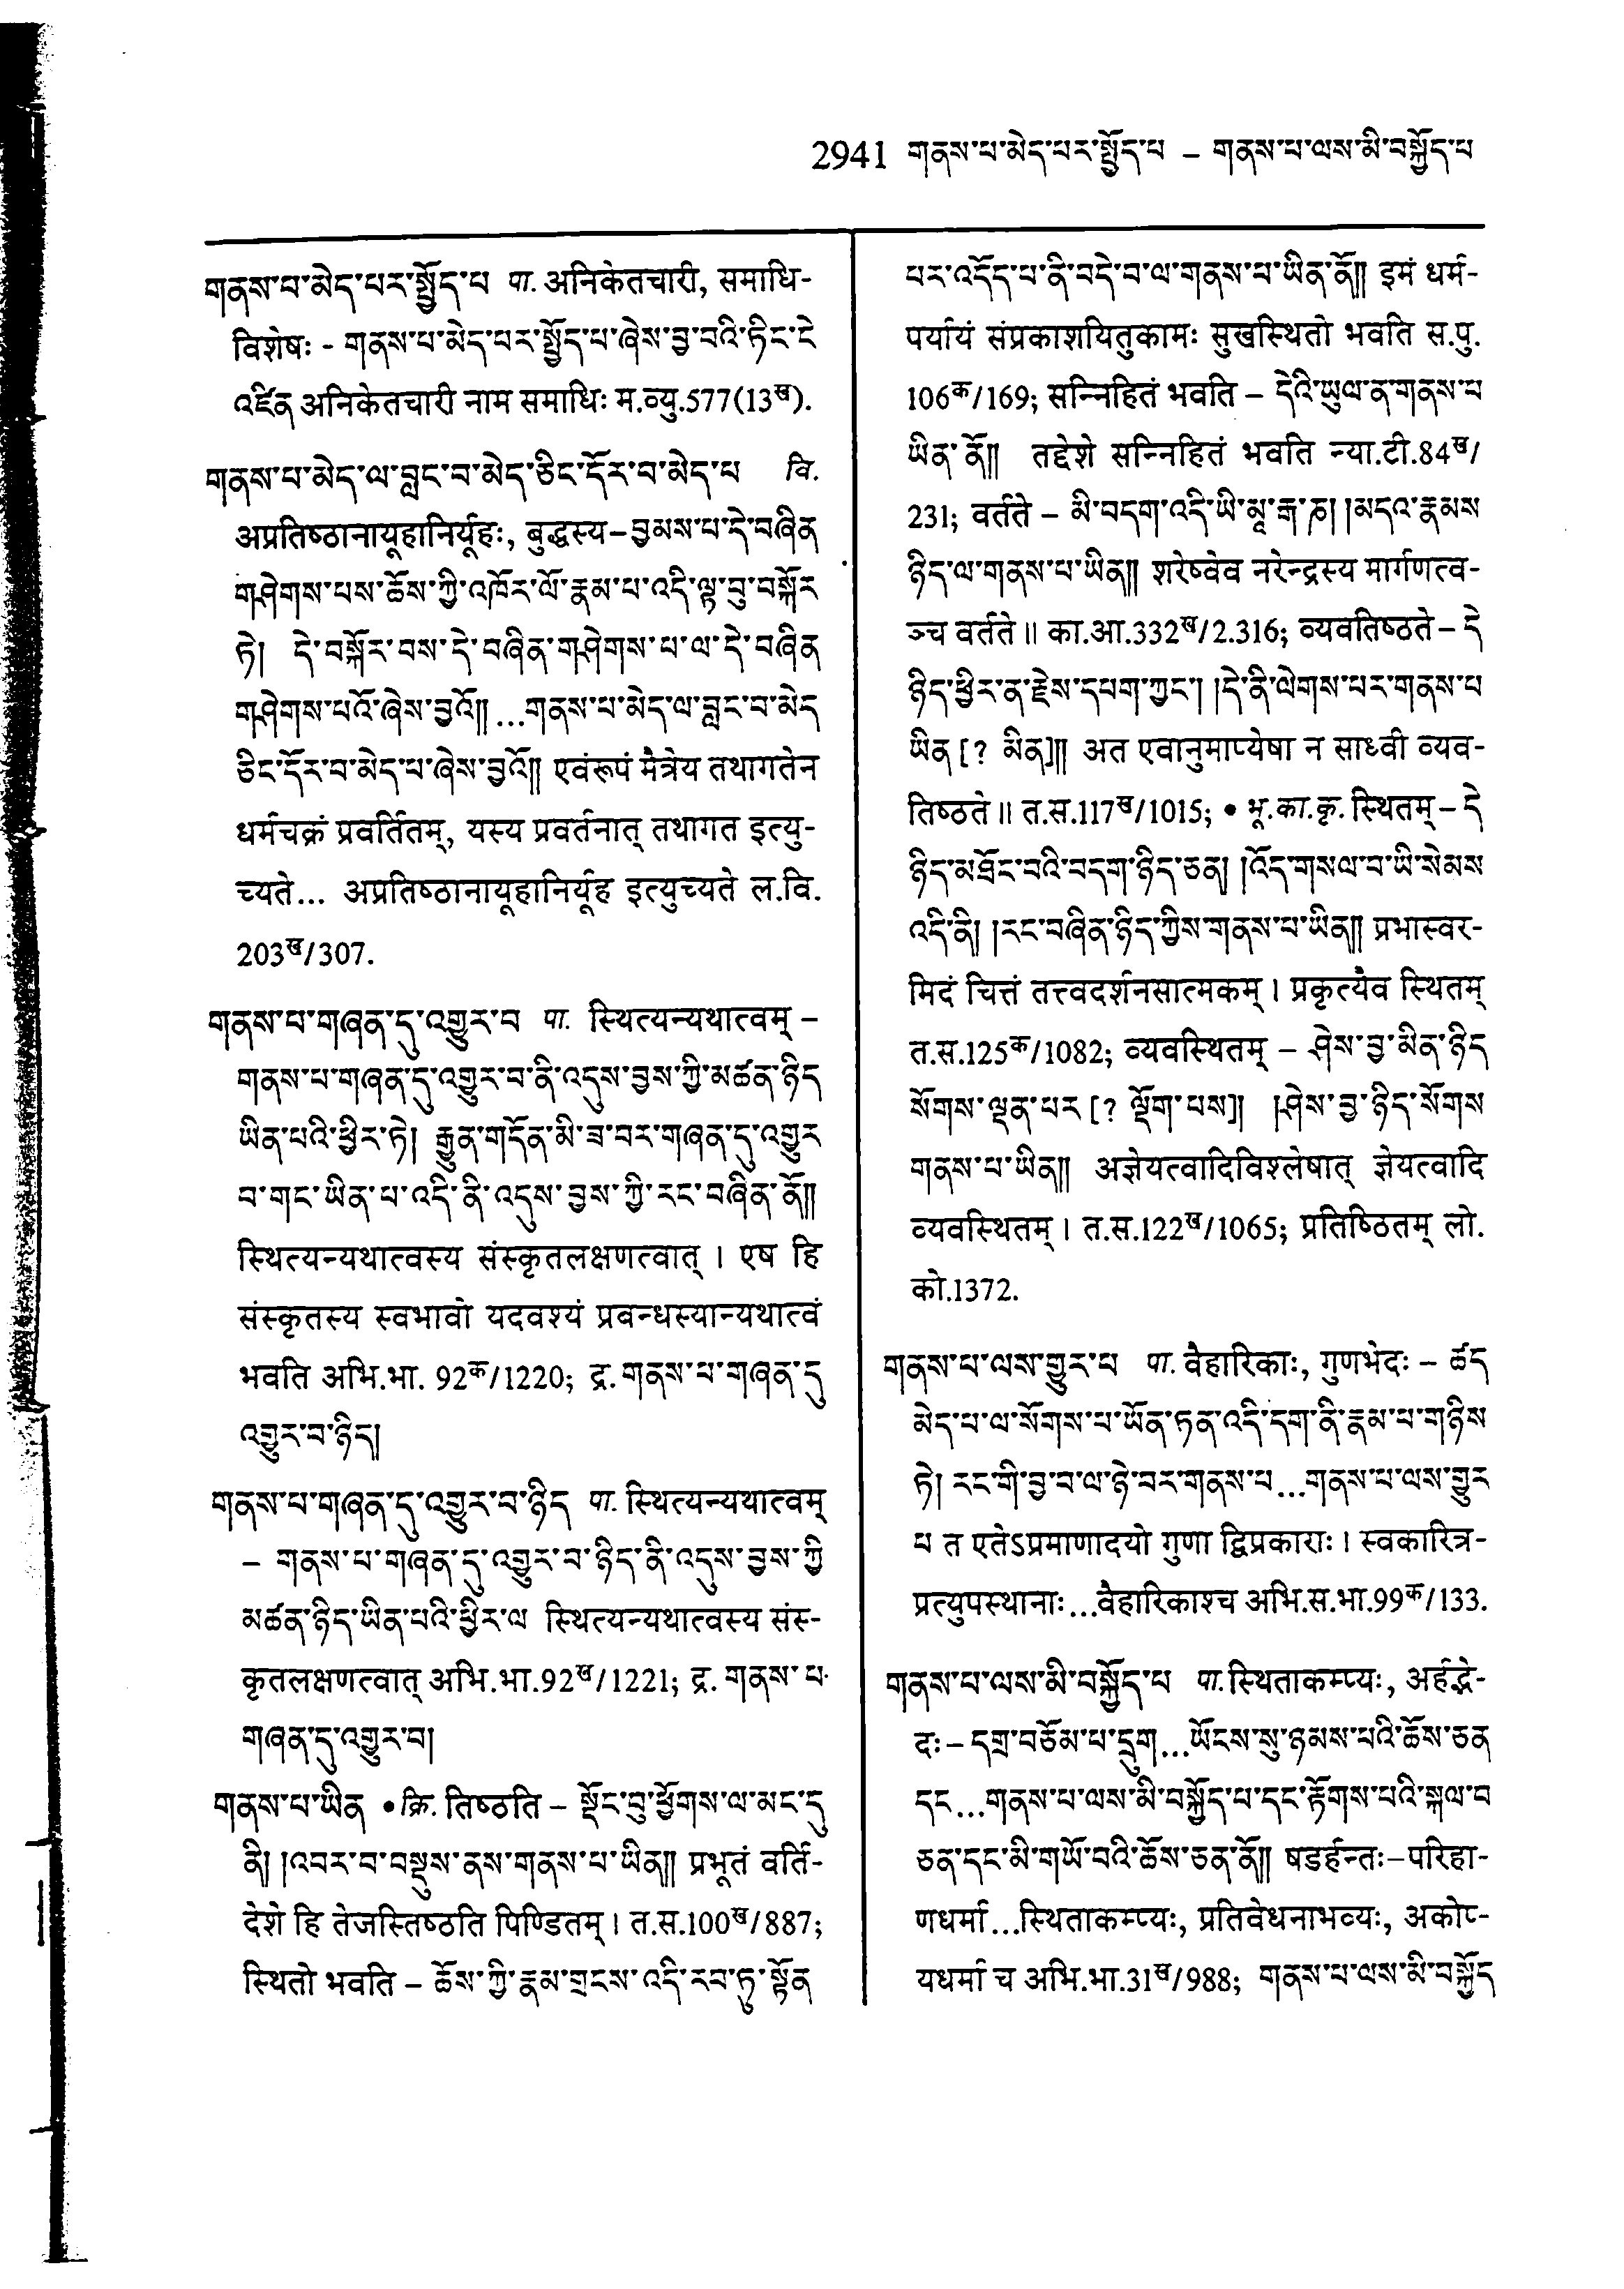 2941 གནས་པ་མེད་པར་སྤྱོད་པ – གནས་པ་ལས་མི་བསྐྱོད་པ
གནས་པ་མེད་པར་སྤྱོད་པ पा. अनिकेतचारी, समाधि-
विशेषः - གནས་པ་མེད་པར་སྤྱོད་པ་ཞེས་བྱ་བའི་ཏིང་ངེ
འཛིན अनिकेतचारी नाम समाधिः म.व्यु.577(13ख).
གནས་པ་མེད་ལ་བླང་བ་མེད་ཅིང་དོར་བ་མེད་པ वि.
अप्रतिष्ठानायूहानिर्यूहः, बुद्धस्य–བྱམས་པ་དེ་བཞིན
གཤེགས་པས་ཆོས་ཀྱི་འཁོར་ལོ་རྣམ་པ་འདི་ལྟ་བུ་བསྐོར
ཏེ། དེ་བསྐོར་བས་དེ་བཞིན་གཤེགས་པ་ལ་དེ་བཞིན
གཤེགས་པའོ་ཞེས་བྱའོ།། ...གནས་པ་མེད་ལ་བླང་བ་མེད
ཅིང་དོར་བ་མེད་པ་ཞེས་བྱའོ།། एवंरूपं मैत्रेय तथागतेन
धर्मचक्रं प्रवर्तितम्, यस्य प्रवर्तनात् तथागत इत्यु-
च्यते... अप्रतिष्ठानायूहानिर्यूह इत्युच्यते ल.वि.
203ख/307.
གནས་པ་གཞན་དུ་འགྱུར་བ पा. स्थित्यन्यथात्वम् –
གནས་པ་གཞན་དུ་འགྱུར་བ་ནི་འདུས་བྱས་ཀྱི་མཚན་ཉིད
ཡིན་པའི་ཕྱིར་ཏེ། རྒྱུན་གདོན་མི་ཟ་བར་གཞན་དུ་འགྱུར
བ་གང་ཡིན་པ་འདི་ནི་འདུས་བྱས་ཀྱི་རང་བཞིན་ནོ།།
स्थित्यन्यथात्वस्य संस्कृतलक्षणत्वात् । एष हि
संस्कृतस्य स्वभावो यदवश्यं प्रबन्धस्यान्यथात्वं
भवति अभि.भा. 92क/1220; द्र. གནས་པ་གཞན་དུ
འགྱུར་བ་ཉིད།
གནས་པ་གཞན་དུ་འགྱུར་བ་ཉིད पा. स्थित्यन्यथात्वम्
– གནས་པ་གཞན་དུ་འགྱུར་བ་ཉིད་ནི་འདུས་བྱས་ཀྱི
མཚན་ཉིད་ཡིན་པའི་ཕྱིར་ལ स्थित्यन्यथात्वस्य संस-
कृतलक्षणत्वात् अभि.भा.92ख/1221; द्र. གནས་པ་
གཞན་དུ་འགྱུར་བ།
གནས་པ་ཡིན • क्रि. तिष्ठति – སྡོང་བུ་ཕྱོགས་ལ་མང་དུ
ནི། །འབར་བ་བསྡུས་ནས་གནས་པ་ཡིན།། प्रभूतं वर्ति-
देशे हि तेजस्तिष्ठति पिण्डितम् । त.स.100ख/887;
स्थितो भवति – ཆོས་ཀྱི་རྣམ་གྲངས་འདི་རབ་ཏུ་སྟོན
པར་འདོད་པ་ནི་བདེ་བ་ལ་གནས་པ་ཡིན་ནོ།། इमं धर्म-
पर्यायं संप्रकाशयितुकामः सुखस्थितो भवति स.पु.
106क/169; सन्निहितं भवति – དེའི་ཡུལ་ན་གནས་པ
ཡིན་ནོ།། तद्देशे सन्निहितं भवति न्या.टी.84ख/
231; वर्तते – མི་བདག་འདི་ཡི་མཱ་རྒ་ཎ། །མདའ་རྣམས
ཉིད་ལ་གནས་པ་ཡིན།། शरेष्वेव नरेन्द्रस्य मार्गणत्व-
ञ्च वर्तते ॥ का.आ.332ख/2.316; व्यवतिष्ठते – དེ
ཉིད་ཕྱིར་ན་རྗེས་དཔག་ཀྱང་། །དེ་ནི་ལེགས་པར་གནས་པ
ཡིན [? མིན]།། अत एवानुमाप्येषा न साध्वी व्यव-
तिष्ठते ॥ त.स.117ख/1015; • भू.का.कृ. स्थितम् – དེ
ཉིད་མཐོང་བའི་བདག་ཉིད་ཅན། །འོད་གསལ་བ་ཡི་སེམས
འདི་ནི། །རང་བཞིན་ཉིད་ཀྱིས་གནས་པ་ཡིན།། प्रभास्वर-
मिदं चित्तं तत्त्वदर्शनसात्मकम् । प्रकृत्यैव स्थितम्
त.स.125क/1082; व्यवस्थितम् – ཤེས་བྱ་མིན་ཉིད
སོགས་ལྡན་པར [? ལྡོག་པས]། །ཤེས་བྱ་ཉིད་སོགས
གནས་པ་ཡིན།། अज्ञेयत्वादिविश्लेषात् ज्ञेयत्वादि
व्यवस्थितम् । त.स.122ख/1065; प्रतिष्ठितम् लो.
को.1372.
གནས་པ་ལས་གྱུར་པ पा. वैहारिकाः, गुणभेदः – ཚད
མེད་པ་ལ་སོགས་པ་ཡོན་ཏན་འདི་དག་ནི་རྣམ་པ་གཉིས
ཏེ། རང་གི་བྱ་བ་ལ་ཉེ་བར་གནས་པ...གནས་པ་ལས་གྱུར
པ त एतेऽप्रमाणादयो गुणा द्विप्रकाराः । स्वकारित्र-
प्रत्युपस्थानाः...वैहारिकाश्च अभि.स.भा.99क/133.
གནས་པ་ལས་མི་བསྐྱོད་པ पा. स्थिताकम्प्यः, अर्हद्भे-
दः – དགྲ་བཅོམ་པ་དྲུག...ཡོངས་སུ་ཉམས་པའི་ཆོས་ཅན
དང...གནས་པ་ལས་མི་བསྐྱོད་པ་དང་རྟོགས་པའི་སྐལ་བ
ཅན་དང་མི་གཡོ་བའི་ཆོས་ཅན་ནོ།། षडर्हन्तः–परिहा-
णधर्मा...स्थिताकम्प्यः, प्रतिवेधनाभव्यः, अकोप्-
यधर्मा च अभि.भा.31ख/988; གནས་པ་ལས་མི་བསྐྱོད